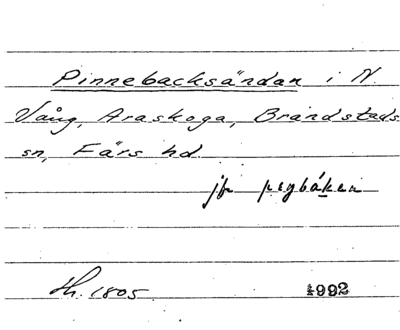 Pinnebacksändan i N.
Vång, Araskoga, Brandstads
sn, Färs hd.
jfr pegbáken
Hh. 1805. 1992